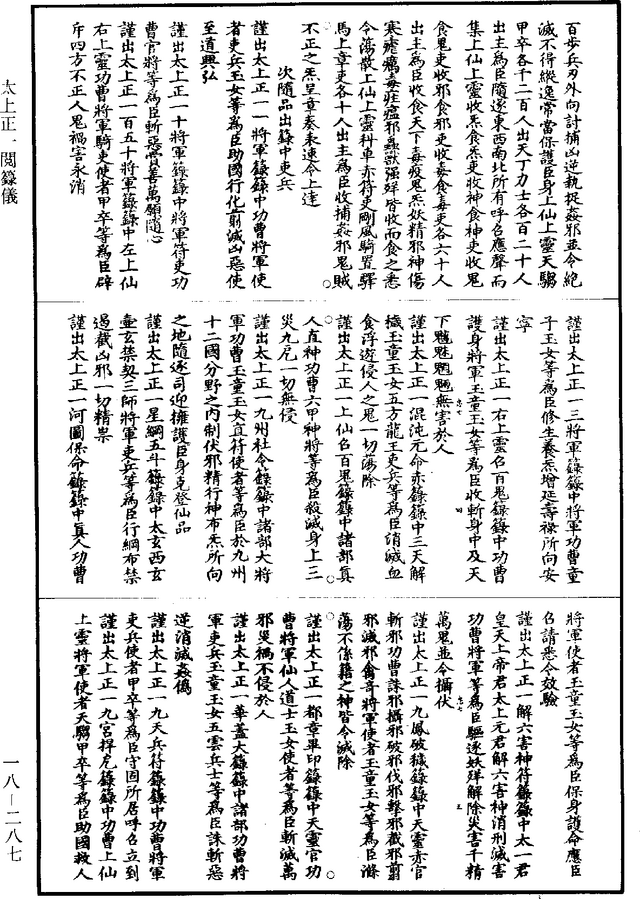 百步兵刃外向討捕凶逆執捉姦邪並令絶
滅不得縱逸常當保護臣身上仙上靈天騶
甲卒各千二百人出天丁力士各百二十人
出主爲臣隨逐東西南北所有呼召應聲而
集上仙上靈收炁食炁吏收神食神吏收鬼
食鬼吏收邪食邪吏收毒食毒吏各六十人
出主爲臣收食天下毒疫鬼炁妖精邪神傷
寒瘧癘毒疰瘟邪蟲獸强殃皆收而食之悉
令蕩散上仙上靈科車赤符吏剛風騎置驛
馬上章吏各十人出主爲臣收捕姦邪鬼賊
不正之炁呈章奏表速令上達
次隨品出籙中吏兵
謹出太上正一一將軍籙籙中功曹將軍使
者吏兵玉女等爲臣助國行化翦滅凶惡使
至道興弘
謹出太上正一十將軍籙籙中將軍符吏功
曹官將等爲臣斬惡賞善萬願隨心
謹出太上正一百五十將軍籙籙中左上仙
右上靈功曹將軍騎吏使者甲卒等爲臣辟
斥四方不正人鬼禍害永消
謹出太上正一三將軍籙籙中將軍功曹童
子玉女等爲臣修生養炁增延壽祿所向安
寧
謹出太上正一右上靈召百鬼籙籙中功曹
護身將軍玉童玉女等爲臣收斬身中及天
下魑魅魍魎無害於人
謹出太上正一混沌元命赤籙籙中三天解
穢玉童玉女五方龍王吏兵等爲臣消滅血
食浮遊侵人之鬼一切蕩除
謹出太上正一上仙召百鬼籙籙中諸部眞
人直神功曹六甲神將等爲臣殺滅身上三
災九厄一切無侵
謹出太上正一九州社令籙籙中諸部大將
軍功曹玉童玉女直符使者等爲臣於九州
十二國分野之内制伏邪精行神布炁所向
之地隨逐司迎擁護臣身克登仙品
謹出太上正一星綱五斗籙籙中太玄西玄
臺玄禁契三師將軍吏兵等爲臣行綱布禁
遏截凶邪一切精祟
謹出太上正一河圖保命籙籙中眞人功曹
將軍使者玉童玉女等爲臣保身護命應臣
召請悉令效驗
謹出太上正一解六害神符籙籙中太一君
皇天上帝君太上元君解六害神消刑滅害
功曹將軍等爲臣驅逐妖殃解除災害千精
萬鬼並令攝伏
謹出太上正一九鳳破穢籙籙中天靈赤官
斬邪功曹誅邪攝邪破邪伐邪擊邪截邪翦
邪滅邪禽奇將軍使者玉童玉女等爲臣滌
蕩不係籍之神皆令滅除
謹出太上正一都章畢印籙籙中天靈官功
曹將軍仙人道士玉女使者等爲臣斬滅萬
邪災禍不侵於人
謹出太上正一華蓋大籙籙中諸部功曹將
軍吏兵玉童玉女五雲兵士等爲臣誅斬惡
逆消滅姦僞
謹出太上正一九天兵符籙籙中功曹將軍
吏兵使者甲卒等爲臣守固所居呼召立到
謹出太上正一九宮捍厄籙籙中功曹上仙
上靈將軍使者天騶甲卒等爲臣助國救人
太上正一閲籙儀
一八—二八七